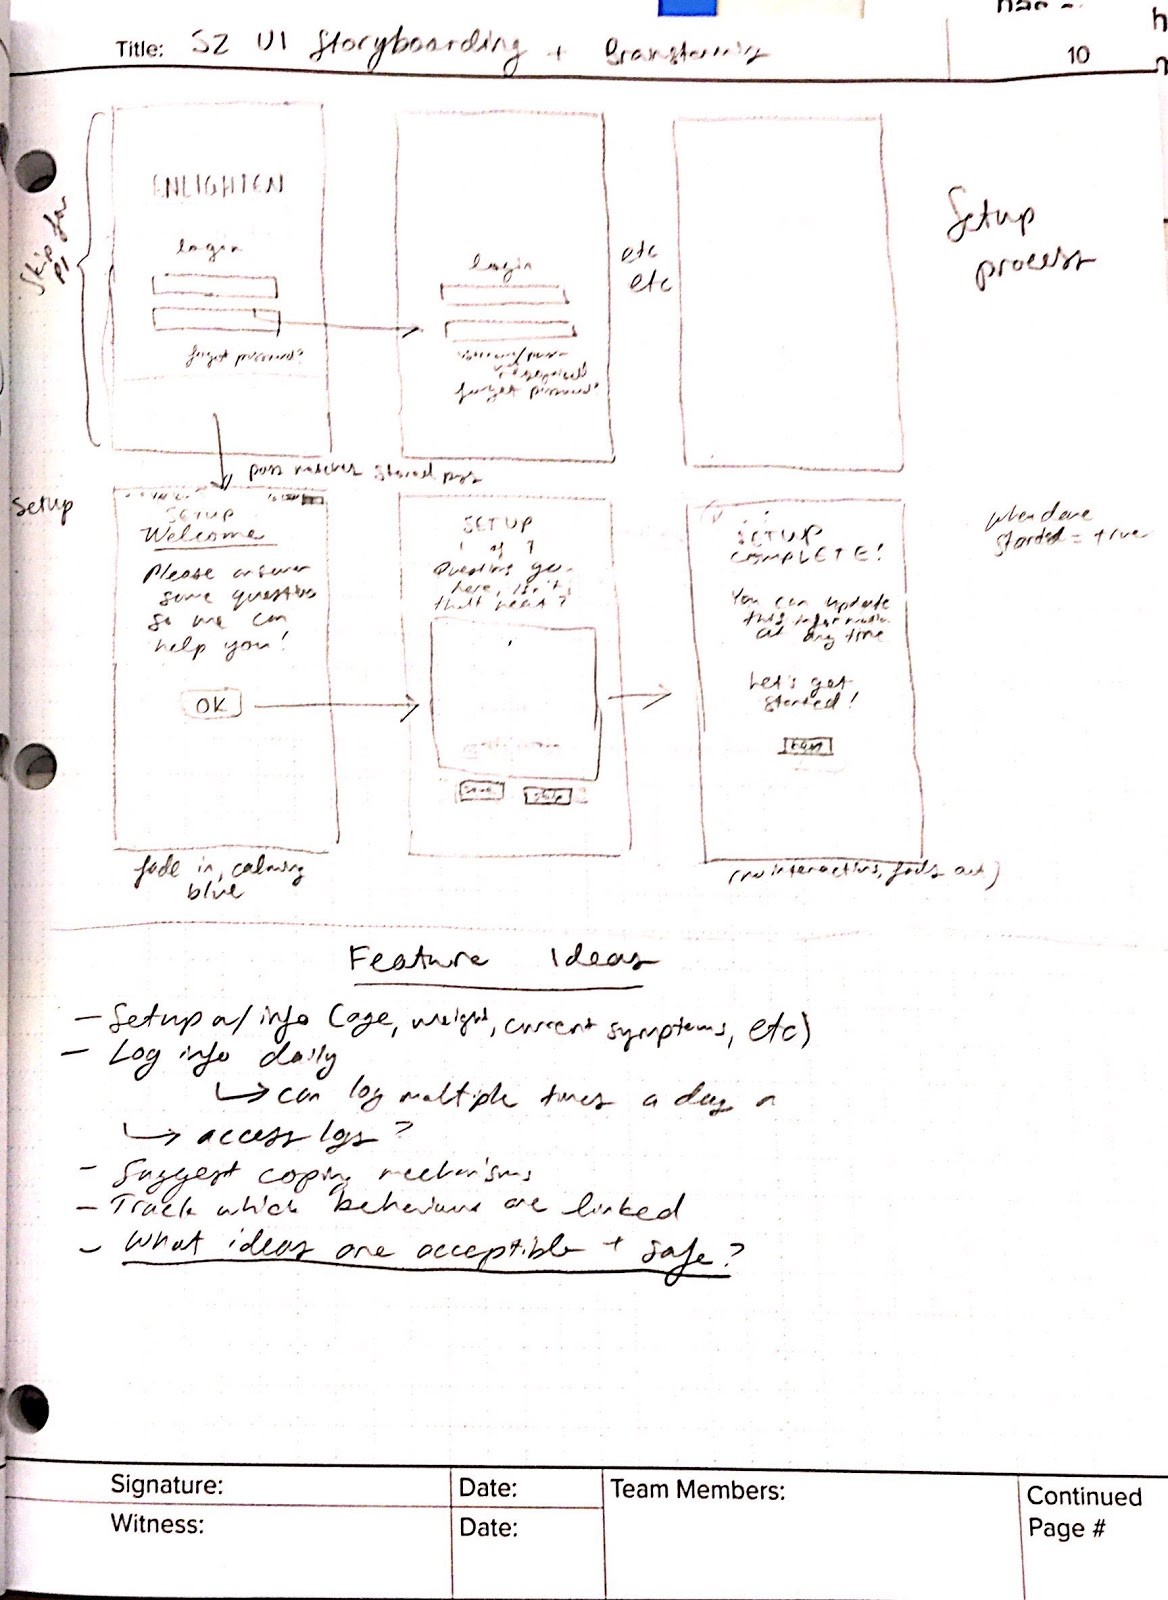 Title: SZ UI Storyboarding + Brainstorming
10
Skip for P1
ENLIGHTEN
login
forgot password?
login
forgot password?
etc
etc
Setup
process
pass matches stored pass
Setup
SETUP
Welcome
Please answer
some questions
so we can
help you!
OK
fade in, calming
blue
SETUP
1 of 7
Questions go
here, isn't
that neat?
Save
Skip
SETUP
COMPLETE!
You can update
this information
at any time
Let's get
started!
(no interaction, fades out)
when done
started = true
Feature Ideas
- Setup w/ info (age, weight, current symptoms, etc)
- Log info daily
↳ can log multiple times a day
↳ access logs?
- Suggest coping mechanisms
- Track which behaviours are linked
- What ideas are acceptible + safe?
Signature:
Date:
Team Members:
Continued
Page #
Witness:
Date: